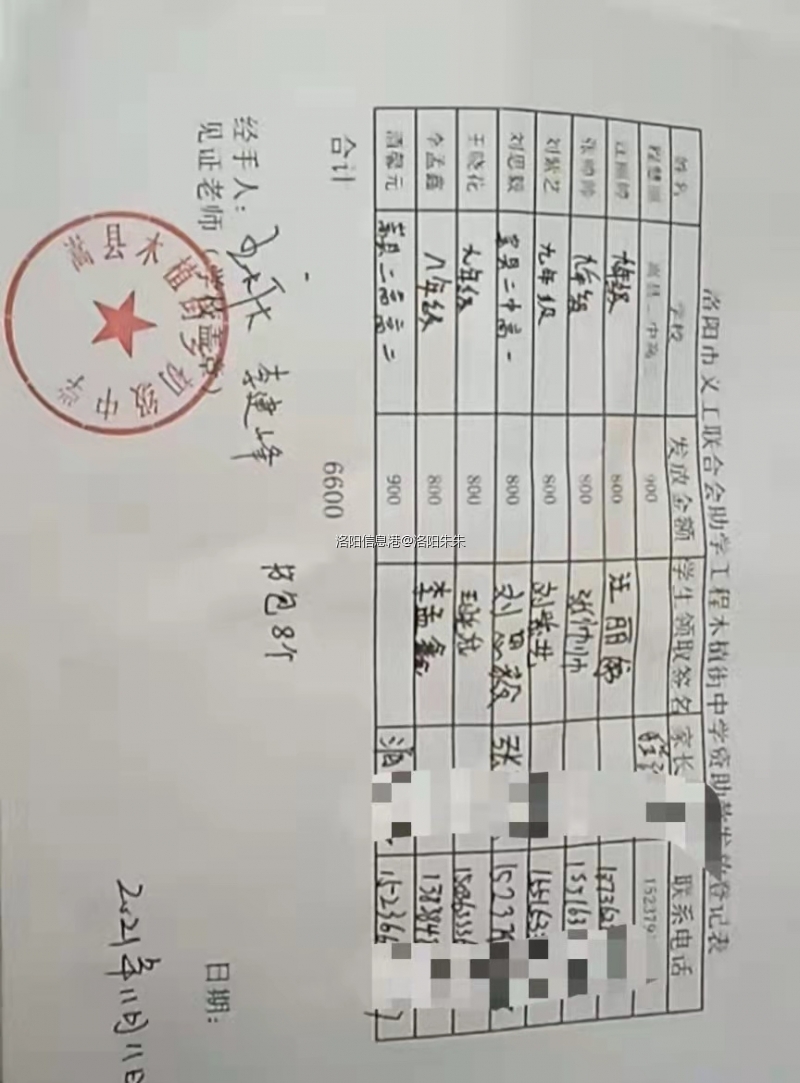 洛阳市义工联合会助学工程木植街中学资助款发放登记表
姓名 学校 发放金额 学生领取签名 家长 联系电话
程慧 嵩县二中高 900 152379
汪丽娜 九年级 800 汪丽娜 187363
张帅帅 九年级 800 张帅帅 155163
刘紫艺 九年级 800 刘紫艺 165163
刘思毅 嵩县二中高一 800 刘思毅 张 15237
王晓花 九年级 800 王晓花
李孟鑫 八年级 800 李孟鑫 1383843
元 嵩县二高高二 900 152366
合计 6600
书包8个
经手人： 李建峰
见证老师（学校盖章） 日期：
2021年11月11日
嵩县木植街乡初级中学
洛阳信息港@洛阳朱朱